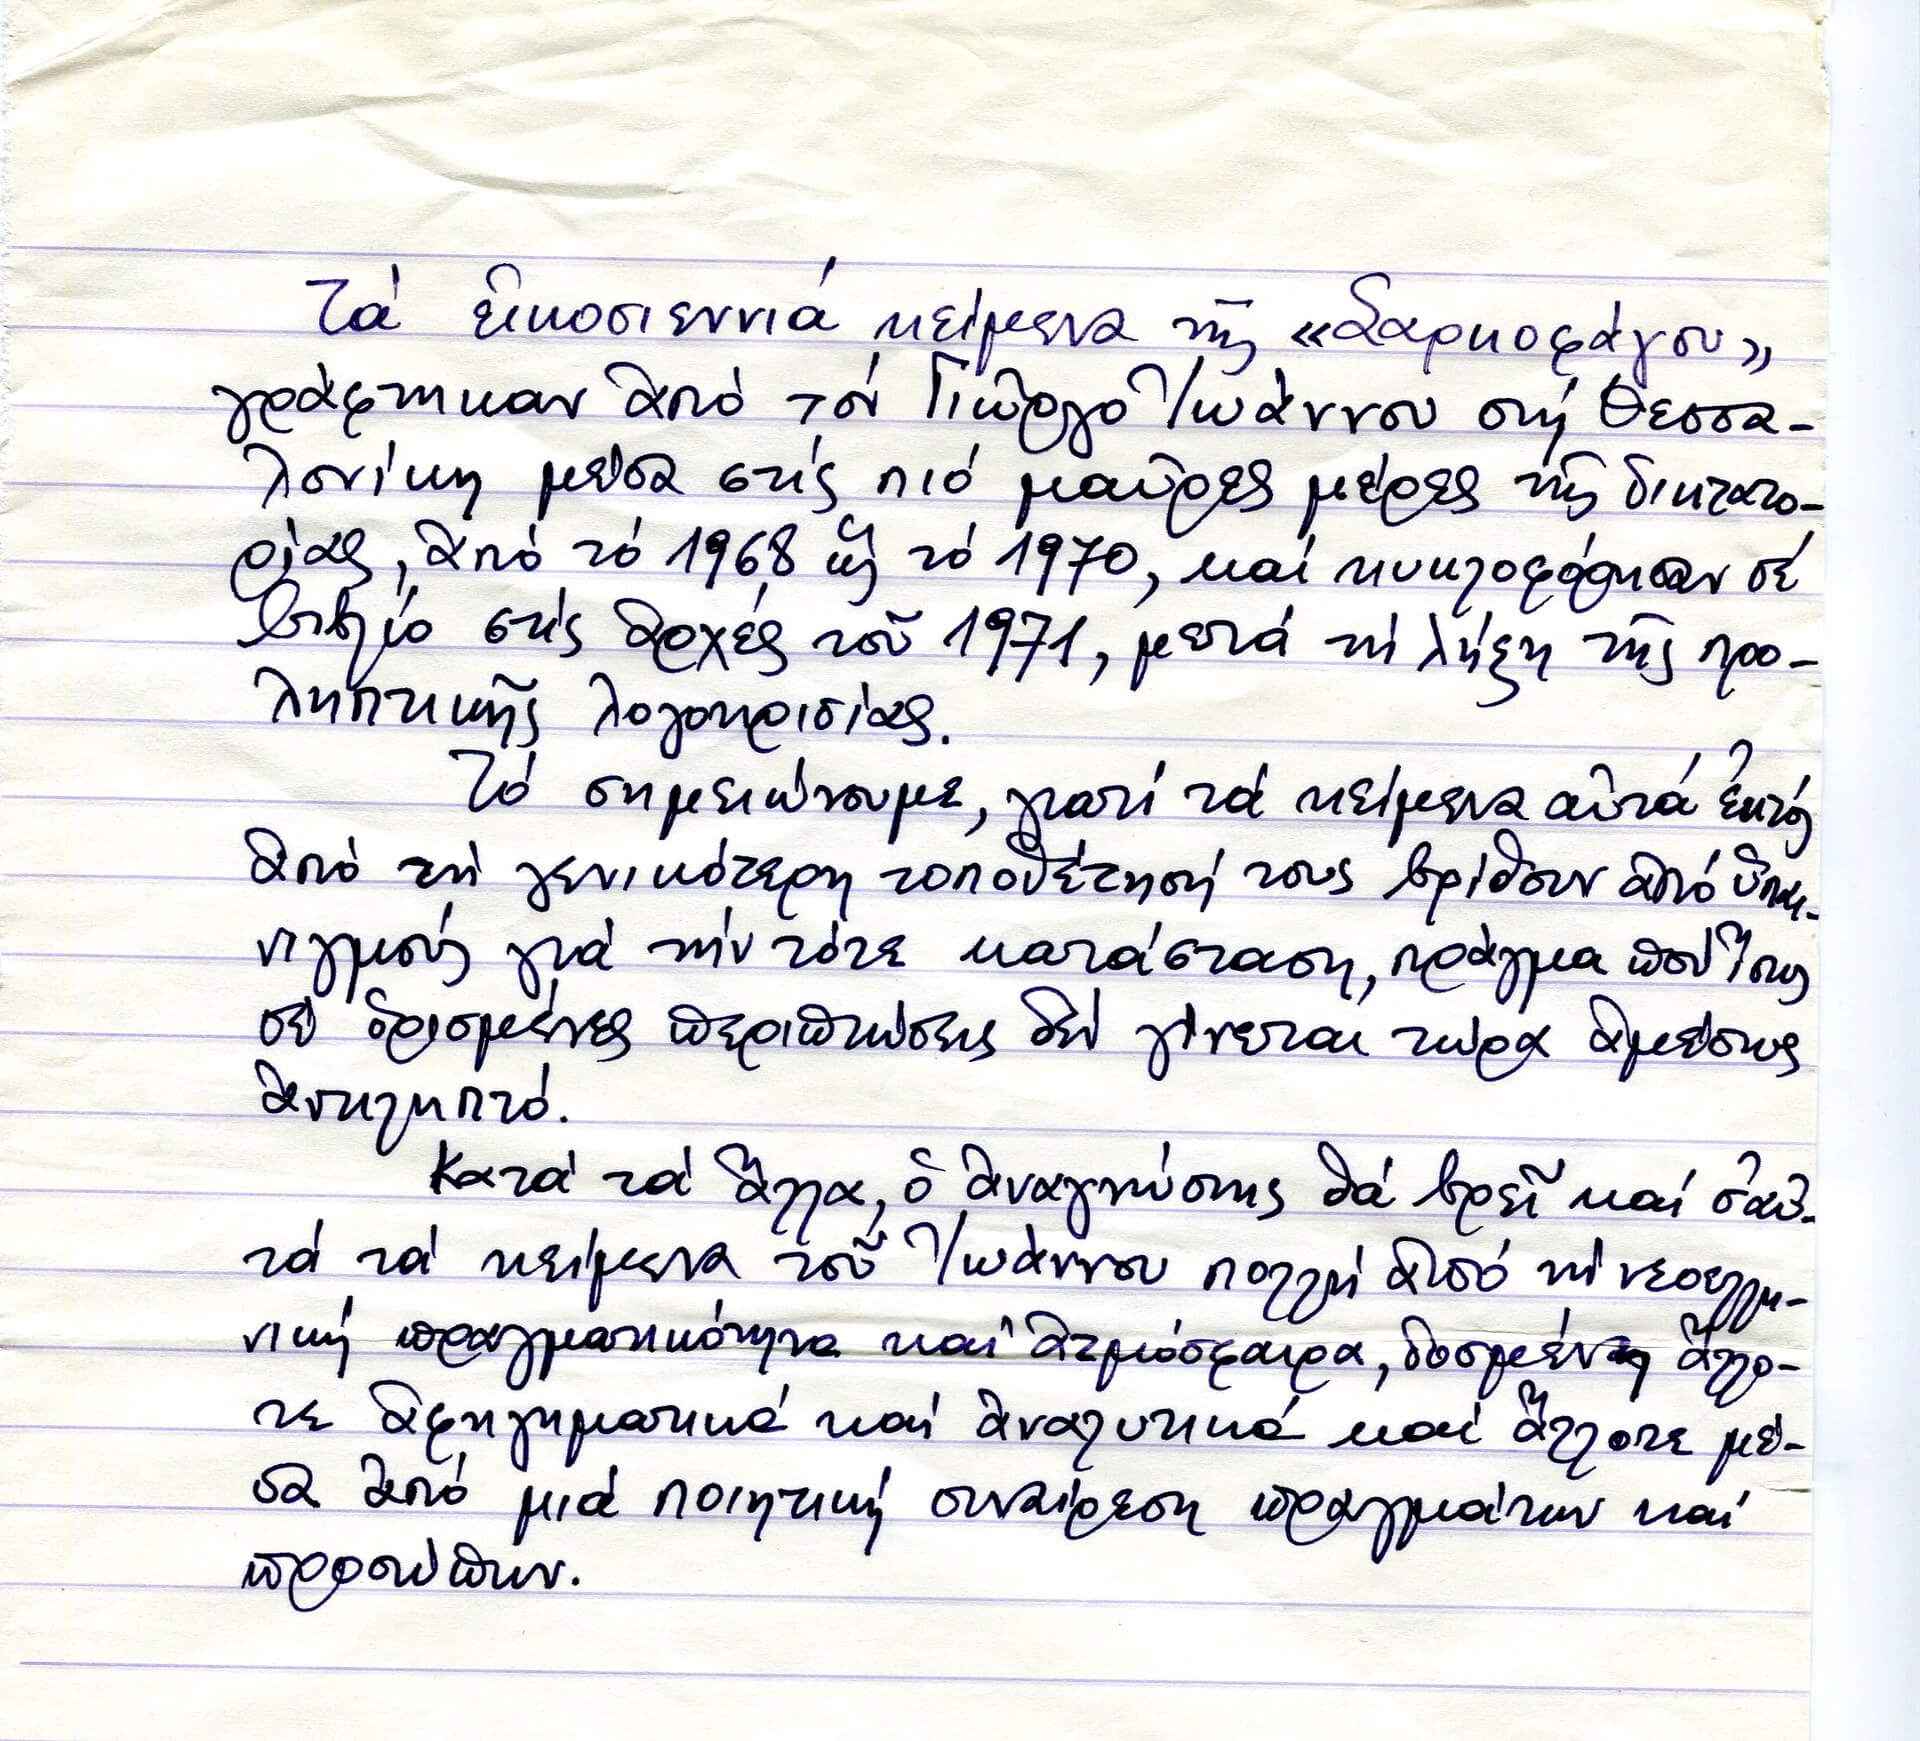 Τά εἰκοσιεννιά κείμενα τῆς «Σαρκοφάγου»
γράφτηκαν ἀπό τόν Γιῶργο Ἰωάννου στή Θεσσα-
λονίκη μέσα στίς πιό μαῦρες μέρες τῆς δικτατο-
ρίας, ἀπό τό 1968 ὥς τό 1970, καί κυκλοφόρησαν σέ
βιβλίο στίς ἀρχές τοῦ 1971, μετά τή λήξη τῆς προ-
ληπτικῆς λογοκρισίας.
Τό σημειώνουμε, γιατί τά κείμενα αὐτά ἐκτός
ἀπό τή γενικότερη τοποθέτησή τους βρίθουν ἀπό ὑπαι-
νιγμούς γιά τήν τότε κατάσταση, πράγμα πού ἴσως
σέ ὁρισμένες περιπτώσεις δέν γίνεται τώρα ἀμέσως
ἀντιληπτό.
Κατά τά ἄλλα, ὁ ἀναγνώστης θά βρεῖ καί σ' αὐ-
τά τά κείμενα τοῦ Ἰωάννου πολλή ἀπό τή νεοελλη-
νική πραγματικότητα καί ἀτμόσφαιρα, δοσμένη ἄλλο-
τε ἀφηγηματικά καί ἀναλυτικά καί ἄλλοτε μέ-
σα ἀπό μιά ποιητική συναίρεση πραγμάτων καί
προσώπων.